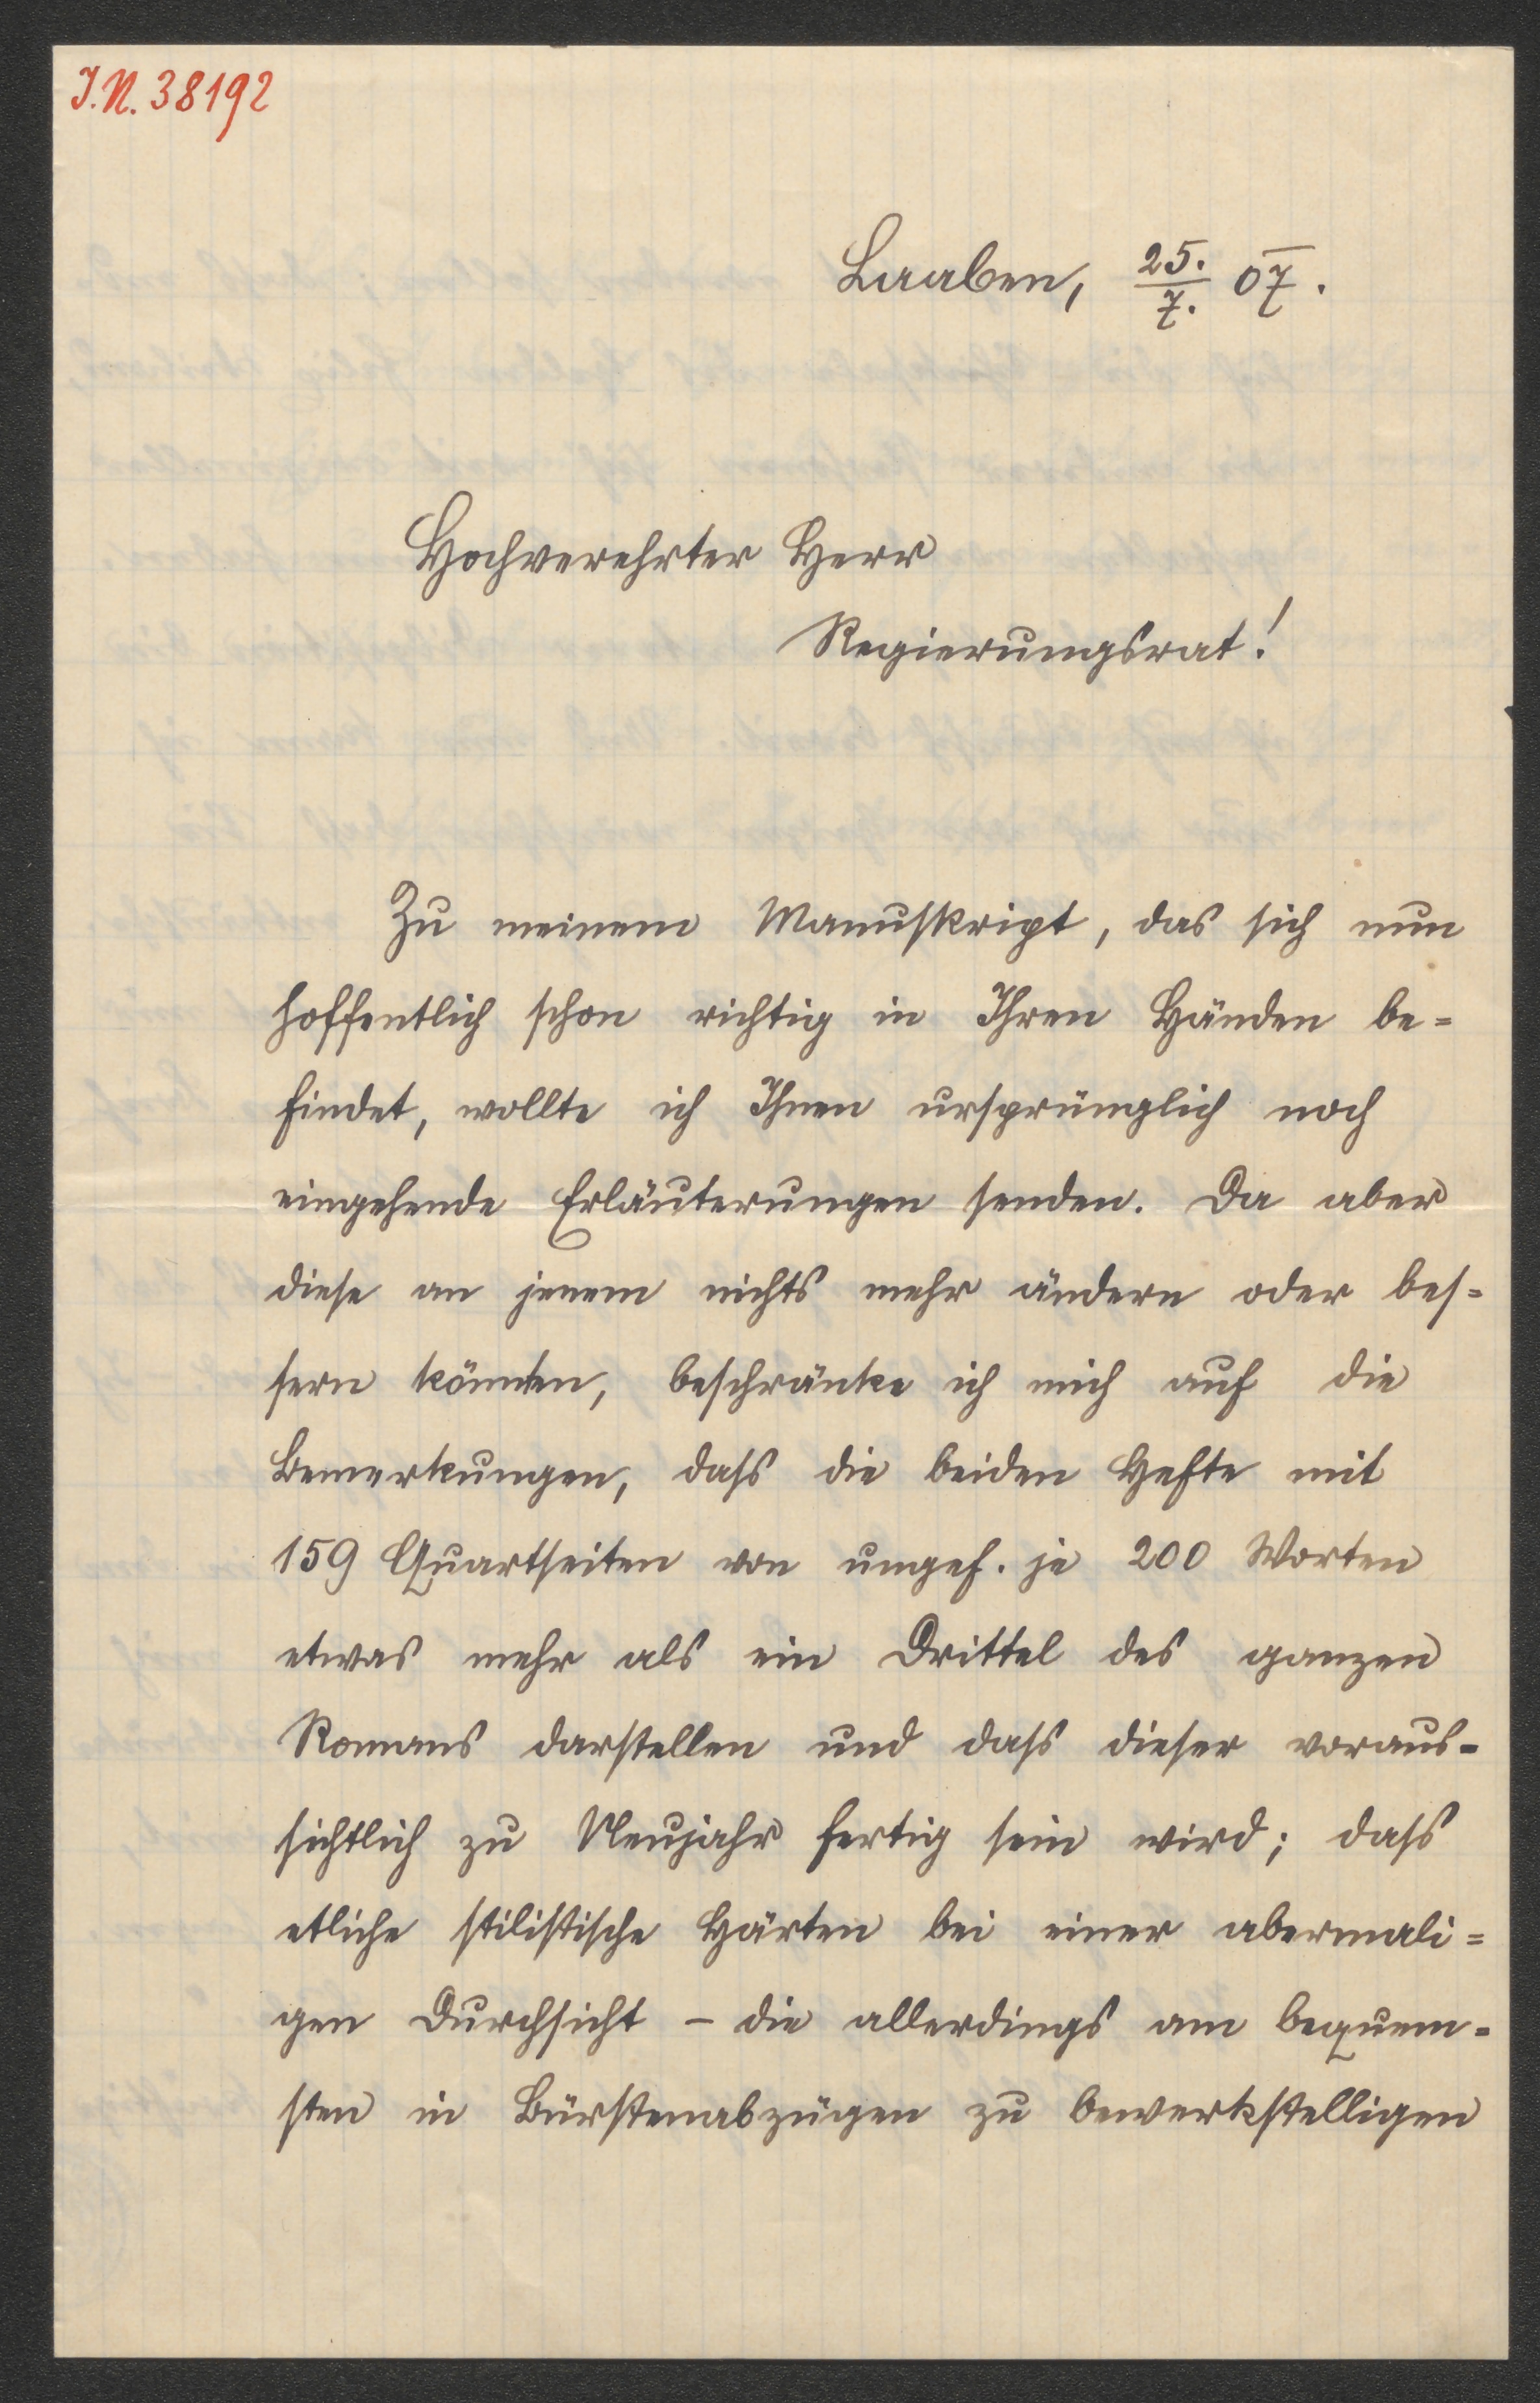 J.N. 38192
Laaben, 25./7. 07.
Hochverehrter Herr
Regierungsrat!
Zu meinem Manuskript, das sich nun
hoffentlich schon richtig in Ihren Händen be=
findet, wollte ich Ihnen ursprünglich noch
eingehende Erläuterungen senden. Da aber
diese an jenem nichts mehr ändern oder bes=
sern könnten, beschränke ich mich auf die
Bemerkungen, dass die beiden Hefte mit
159 Quartseiten von ungef. je 200 Worten
etwas mehr als ein Drittel des ganzen
Romans darstellen und dass dieser voraus=
sichtlich zu Neujahr fertig sein wird; dass
etliche stilistische Härten bei einer abermali=
gen Durchsicht – die allerdings am bequem=
sten in Bürstenabzügen zu bewerkstelligen